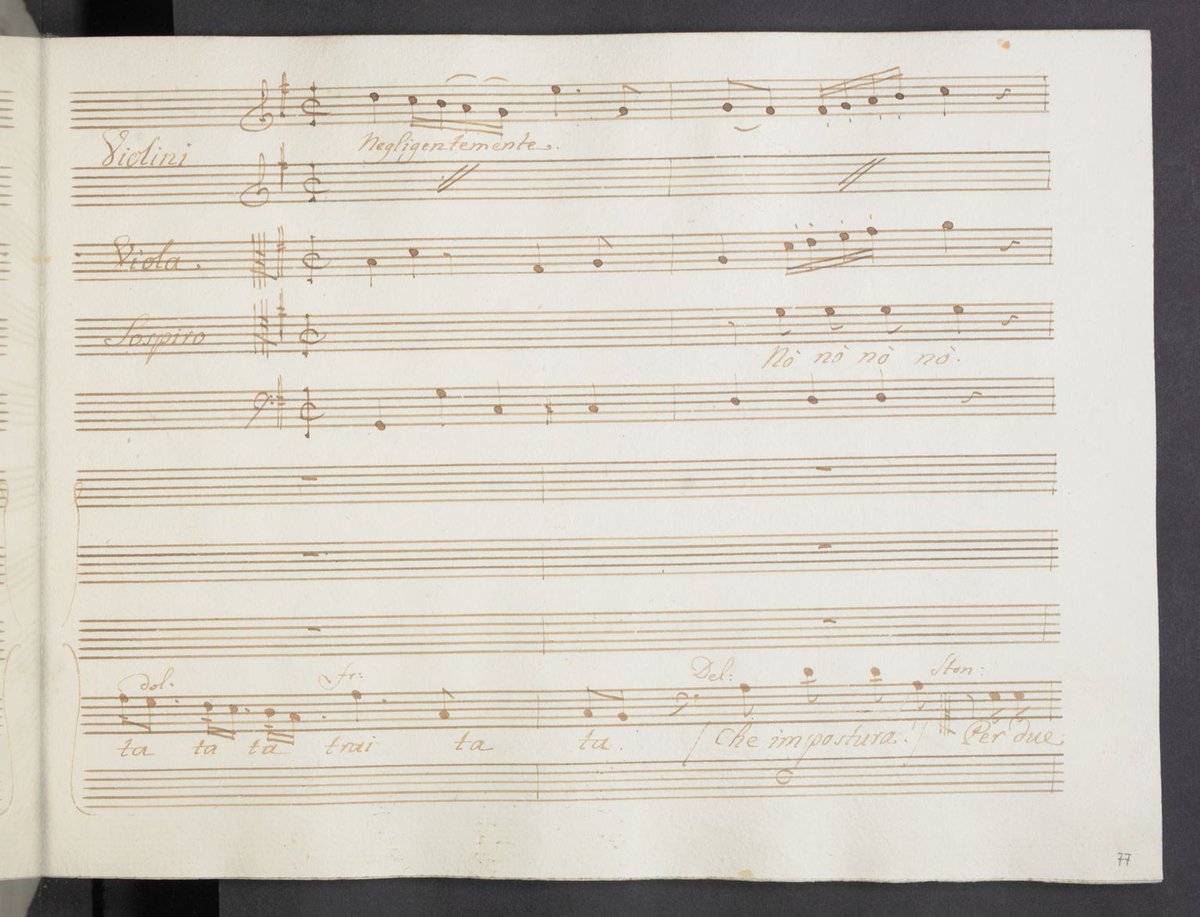 Violini
Negligentemente.
Viola.
Sospiro
Nò nò nò nò.
dol. fr: Del: Ston:
ta ta ta trai ta ta. Che impostura! Per due
77